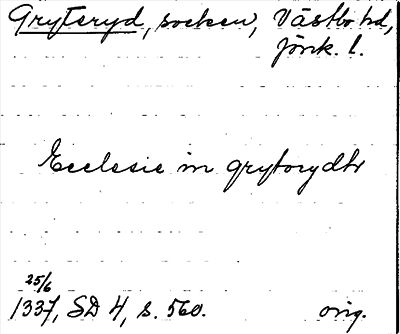 Gryteryd, socken, Västbo hd,
Jönk. l.
Ecclesie in grytorydhr
25/6
1337, SD 4, s. 560. orig.